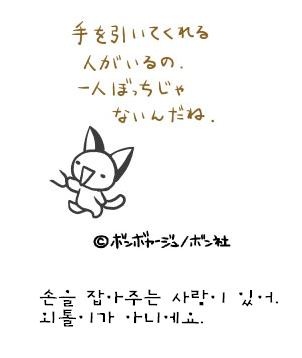 手を引いてくれる
人がいるの.
一人ぼっちじゃ
ないんだね.
©ボンボヤージュ/ボン社
손을 잡아주는 사람이 있어.
외톨이가 아니에요.